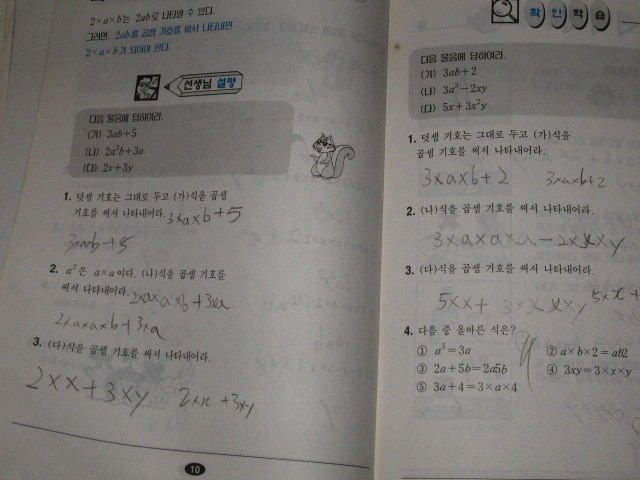 2×a×b는 2ab로 나타낼 수 있다.
그러면, 2ab를 곱셈 기호를 써서 나타내면
2×a×b가 되어야 한다.
선생님 설명
다음 물음에 답하여라.
(가) 3ab+5
(나) 2a²b+3a
(다) 2x+3y
1. 덧셈 기호는 그대로 두고 (가)식을 곱셈
기호를 써서 나타내어라. 3×a×b+5
3×a×b+5
2. a²은 a×a이다. (나)식을 곱셈 기호를
써서 나타내어라. 2×a×a×b+3×a
2×a×a×b+3×a
3. (다)식을 곱셈 기호를 써서 나타내어라.
2×x+3×y 2×x+3×y
10
확인학습
다음 물음에 답하여라.
(가) 3ab+2
(나) 3a³-2xy
(다) 5x+3x²y
1. 덧셈 기호는 그대로 두고 (가)식을
곱셈 기호를 써서 나타내어라.
3×a×b+2 3×a×b+2
2. (나)식을 곱셈 기호를 써서 나타내어라.
3×a×a×a-2×x×y
3. (다)식을 곱셈 기호를 써서 나타내어라.
5×x+ 3×x×x×y 5×x+
4. 다음 중 올바른 식은?
① a³=3a ② a×b×2=ab2
③ 2a+5b=2a5b ④ 3xy=3×x×y
⑤ 3a+4=3×a×4